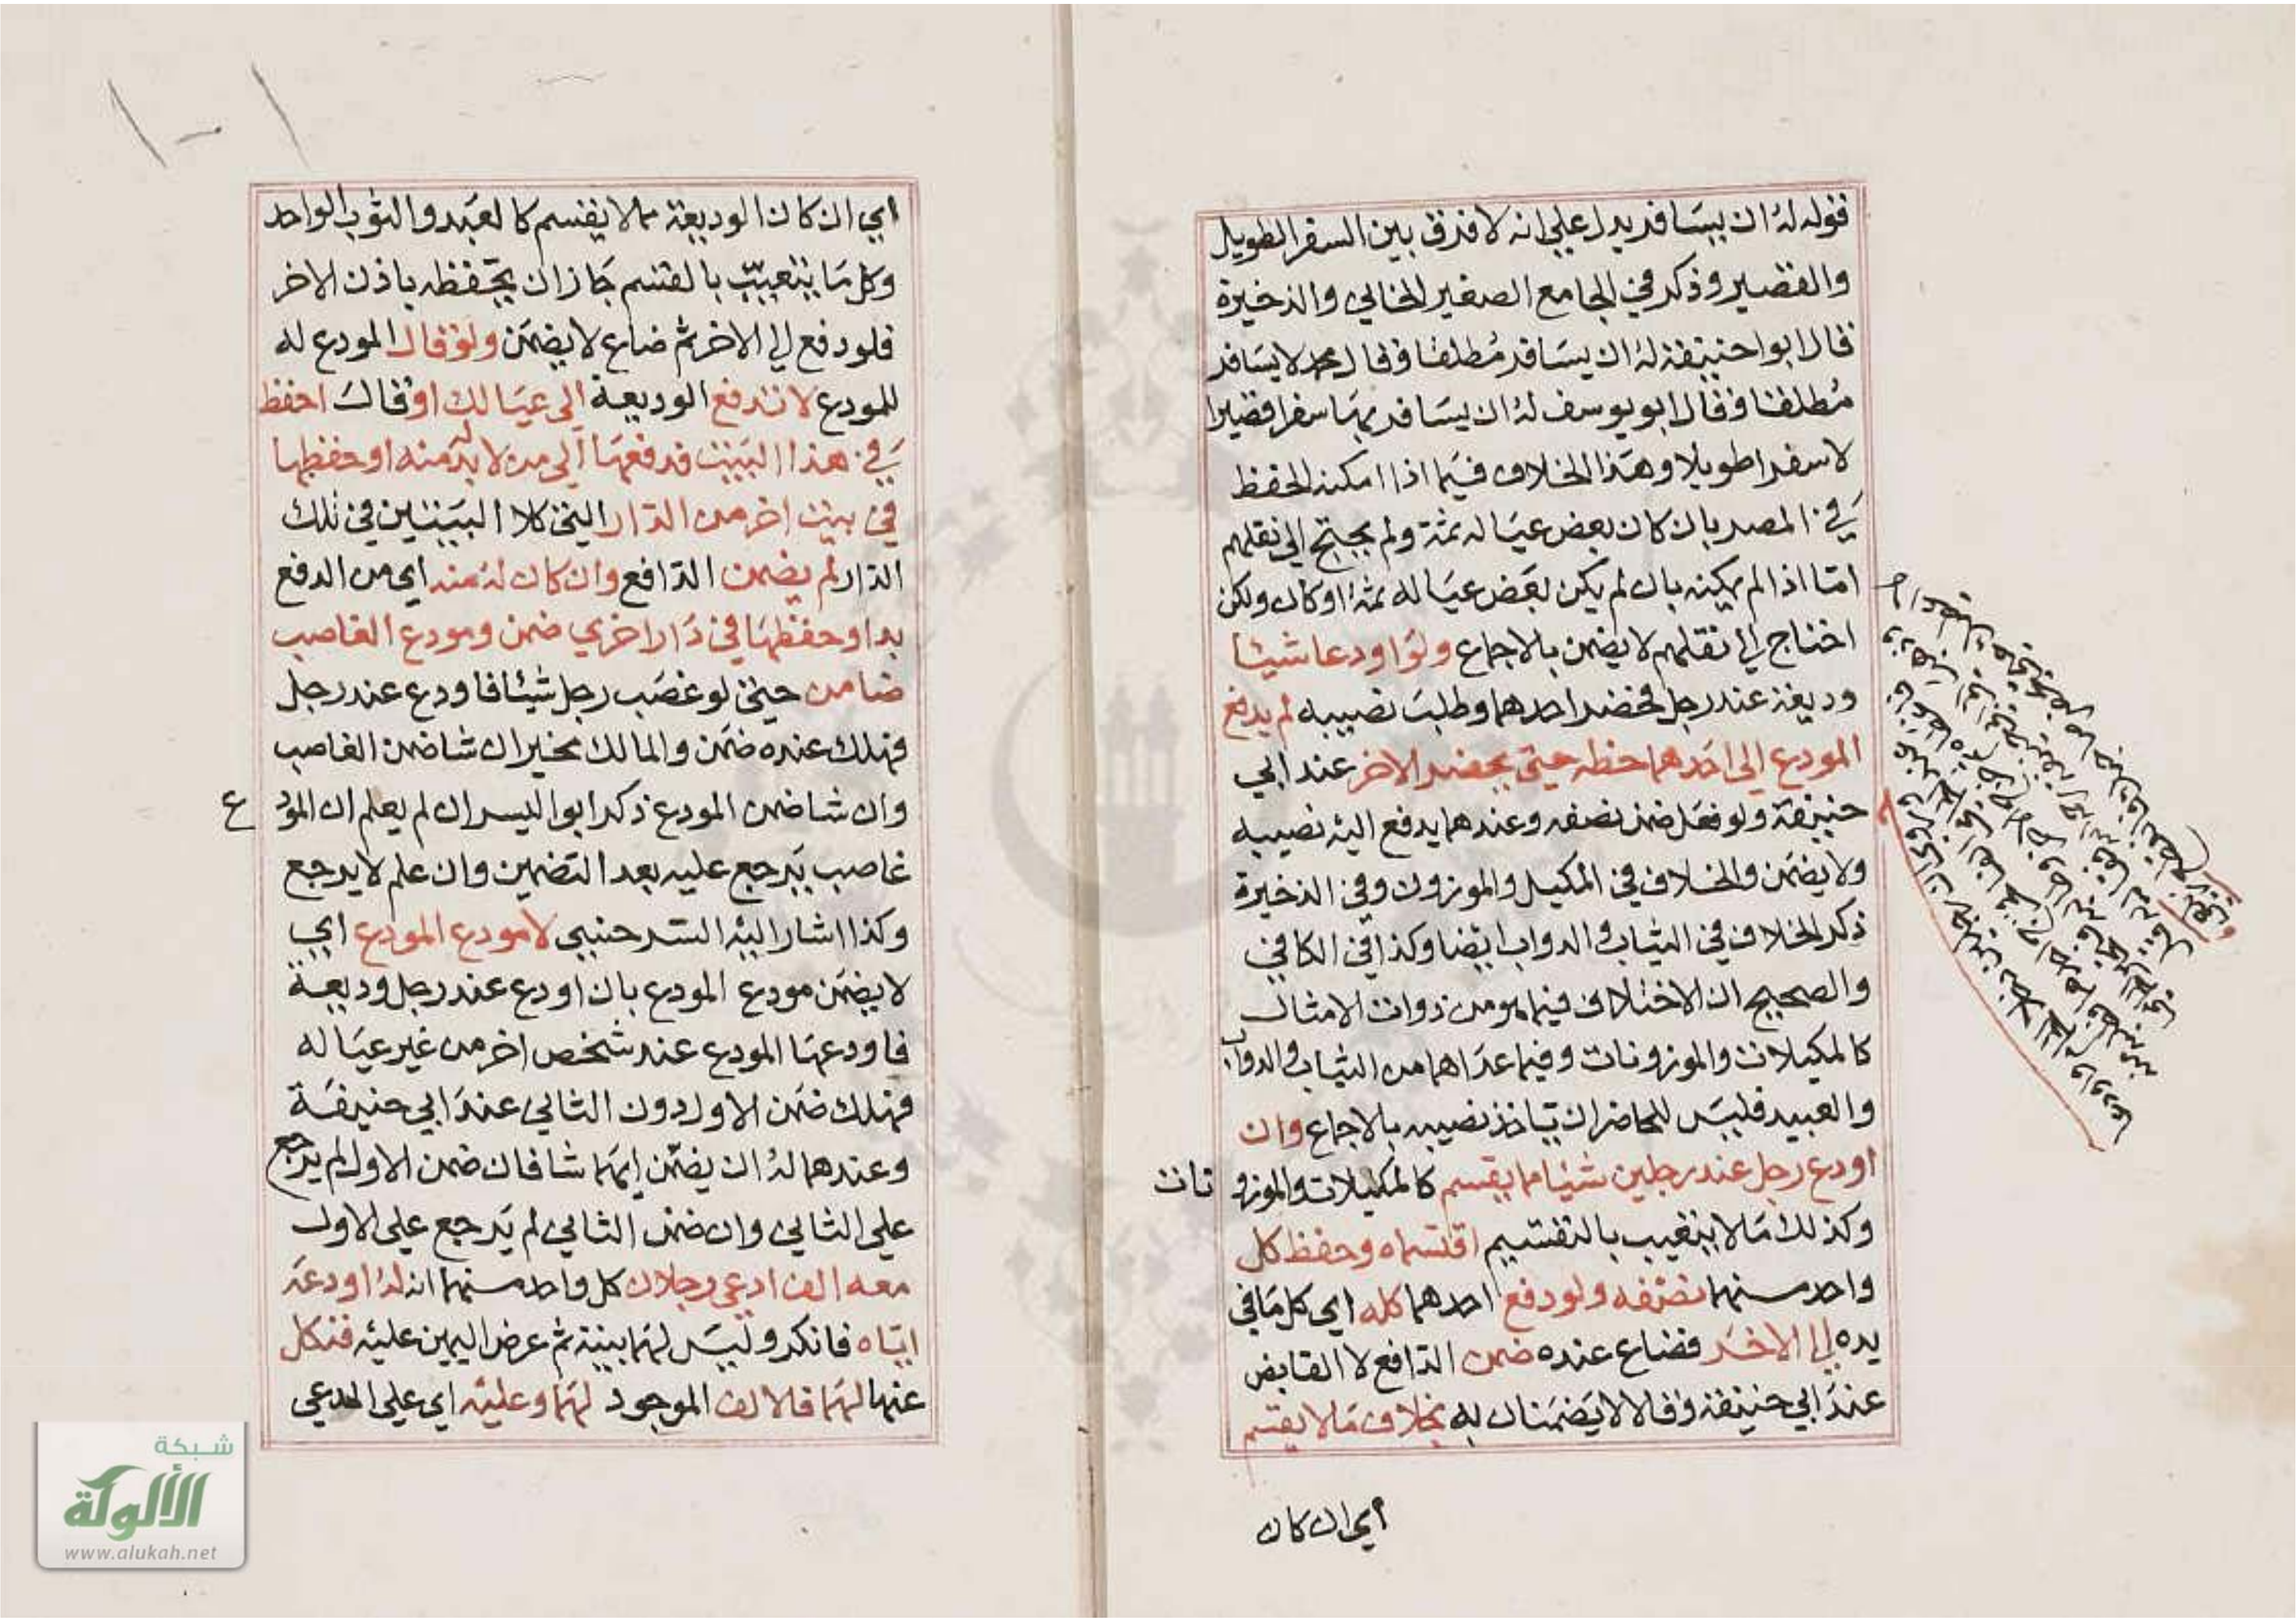 فقوله له ان يسافر يدل علي انه لا فرق بين السفر الطويل
والقصير وذكر في الجامع الصغير الخاني والذخيرة
قال ابو حنيفة له ان يسافر مطلقا وقال محمد لا يسافر
مطلقا وقال ابو يوسف له ان يسافر بها سفرا قصيرا
لا سفرا طويلا وهذا الخلاف فيما اذا امكنه الحفظ
في المصر بان كان بعض عياله ثمة ولم يحتج الي نقلهم
امّا اذا لم يمكنه بان لم يكن بعض عياله ثمة او كان ولكن
احتاج الي نقلهم لا يضمن بالاجماع ولو اودعا شيئا
وديعة عند رجل فحضر احدهما وطلب نصيبه لم يدفع
المودع الى احدهما حظه حتي يحضر الاخر عند ابي
حنيفة ولو فعل ضمن نصفه وعندهما يدفع اليه نصيبه
ولا يضمن والخلاف في المكيل والموزون وفي الذخيرة
ذكر الخلاف في الثياب والدواب ايضا وكذا في الكافي
والصحيح ان الاختلاف فيما هو من ذوات الامثال
كالمكيلات والموزونات وفيما عداهما من الثياب والدواب
والعبيد فليس للحاضر ان ياخذ نصيبه بالاجماع وان
اودع رجل عند رجلين شيئا مما يقسم كالمكيلات والموزو نات
وكذلك ما لا يتعيب بالتقسيم اقتسماه وحفظ كل
واحد منهما نصفه ولو دفع احدهما كله اي كل ما في
يده الي الاخر فضاع عنده ضمن الدافع لا القابض
عند ابي حنيفة وقالا لا يضمنان به بخلاف ما لا يقسم
اي ان كان
اي ان كان الوديعة مما لا يقسم كالعبد والثوب الواحد
وكل ما يتعيب بالقسم جاز ان يحفظه باذن الاخر
فلو دفع الي الاخر ثم ضاع لا يضمن ولو قال المودع له
للمودع لا تدفع الوديعة الى عيالك او قال احفظ
في هذا البيت فدفعها الى من لا بد له منه او حفظها
في بيت اخر من الدار التي كلا البيتين في تلك
الدار لم يضمن الدافع وان كان له منه اي من الدفع
بد او حفظها في دار اخري ضمن ومودع الغاصب
ضامن حتي لو غصب رجل شيئا فاودع عند رجل
فهلك عنده ضمن والمالك مخير ان شا ضمن الغاصب
وان شا ضمن المودع ذكر ابو اليسر ان لم يعلم ان المود ع
غاصب يرجع عليه بعد التضمين وان علم لا يرجع
وكذا اشار اليه السرخسي لا مودع المودع اي
لا يضمن مودع المودع بان اودع عند رجل وديعة
فاودعها المودع عند شخص اخر من غير عياله
فهلك ضمن الاول دون الثاني عند ابي حنيفة
وعندهما له ان يضمن ايهما شا فان ضمن الاول لم يرجع
علي الثاني وان ضمن الثاني لم يرجع علي الاول
معه الف ادعي رجلان كل واحد منهما انه له اودعه
اياه فانكر وليس لهما بينة ثم عرض اليمين عليه فنكل
عنهما لهما فالالف الموجود لهما وعليه اي علي المدعي
شبكة
الألوكة
www.alukah.net